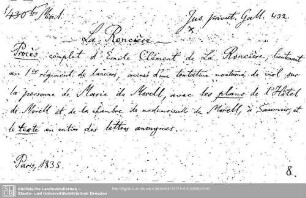 Jus privat. Gall. 432.
La Roncière
Procès complet d'Emile Clément de La Roncière, lieutenant
au 1er régiment de lanciers, accusé d'une tentative nocturne de viol sur
la personne de Marie de Morell, avec les plans de l'Hôtel
de Morell et de la chambre de mademoiselle de Morell, à Saumur, et
le texte en entier des lettres anonymes.
Paris, 1835.
8.